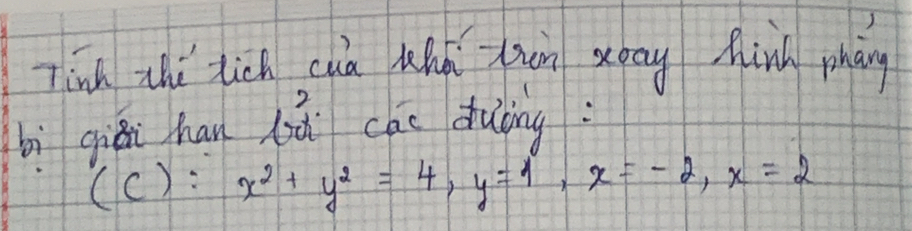 Tính thể tích của khối tròn xoay hình phẳng
bị giới hạn bởi các đường :
(C) : x² + y² = 4, y = 1, x = -2, x = 2